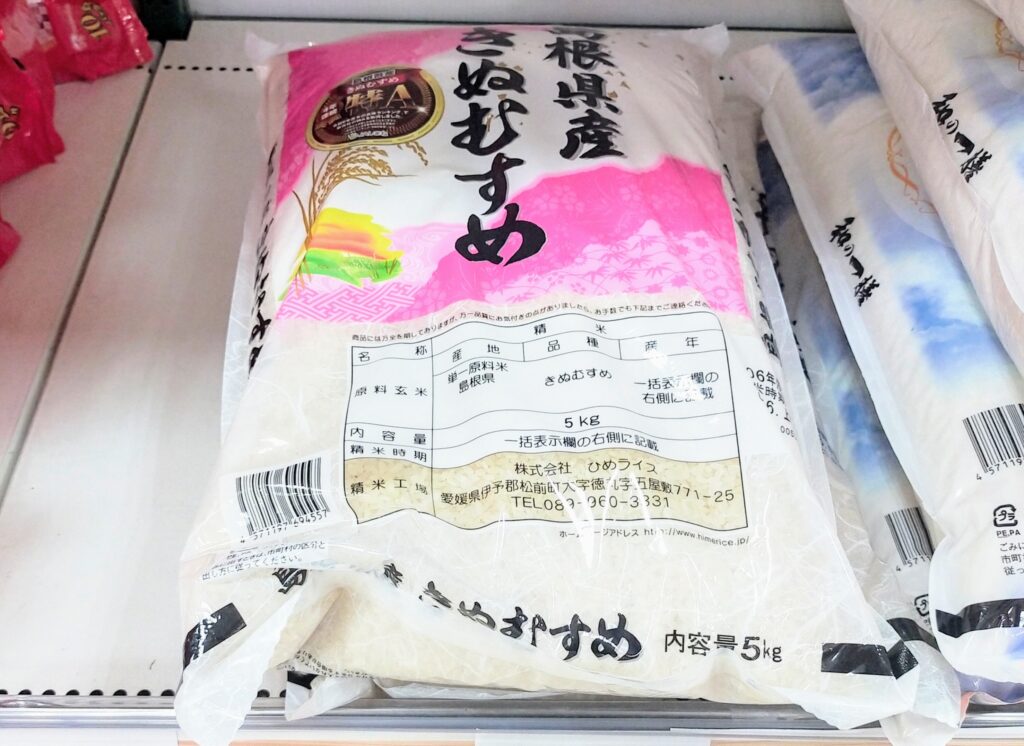 島根県産
きぬむすめ
きぬむすめ
特A
商品には万全を期しておりますが、万一品質にお気付きの点がありましたら、お手数でも下記までご連絡くださ
精米
名称 産地 品種 産年
原料玄米
単一原料米
島根県 きぬむすめ
一括表示欄の
右側に記載
内容量 5kg
精米時期 一括表示欄の右側に記載
精米工場
株式会社 ひめライス
愛媛県伊予郡松前町大字徳丸字五屋敷771-25
TEL089-960-3331
ホームページアドレス http://www.himerice.jp/
06年
4571197494557
市町村の区分と
出し方に従ってください。
きぬむすめ
内容量5kg
PE,PA
ごみに
市町
従っ